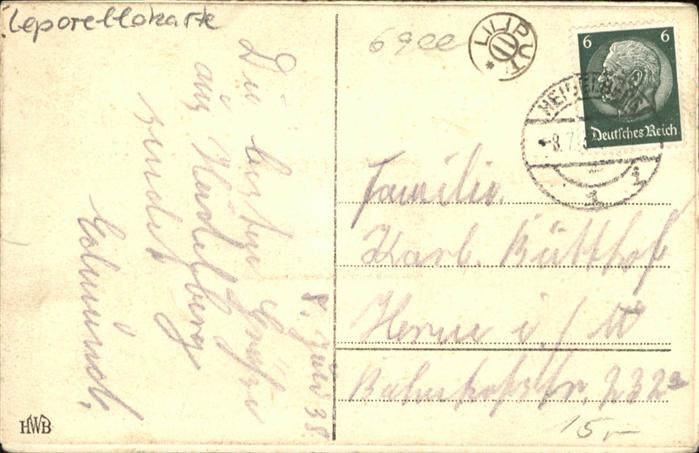 Leporellokarte
6900
LILIPUT
6 6
Deutsches Reich
HEIDELBERG
-8.7.3
1
Die besten Grüße
aus Heidelberg
sendet
8. Juli 38.
Familie
Karl Bütthof
Herne i/W
Bahnhofstr. 232a
15,-
HWB